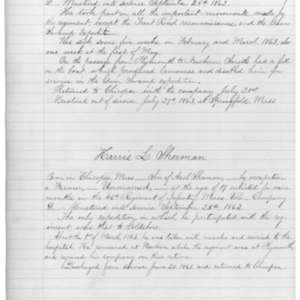 D. Mustered into service September 26th 1862.
He took part in all the important movements made by
the regiment except the Trent Road reconnaissance and the Gum
Swamp expedition.
Was sick some few weeks in February and March 1863, also one
week at the last of May.
On the passage from Plymouth to Newbern
the boat which produced lameness and disabled him for
service on the Gum Swamp expedition.
Returned to Chicopee with the company July 21st
Mustered out of service July 29th 1863 at Springfield, Mass
Harris L. Sherman
Born in Chicopee Mass Son of Sherman, by occupation
a Farmer, Unmarried, at the age of 19 enlisted for nine
months in the 46th Regiment of Infantry Mass. Vols. Company
D. Mustered into service September 26th 1862.
The only expedition in which he participated with the reg-
iment was that to Goldsboro.
About the 1st of March 1863 he was taken with measles and carried to the
hospital. He remained at Newbern while the regiment was at Plymouth,
and joined his company on their return.
Discharged from service June 20 1863 and returned to Chicopee.